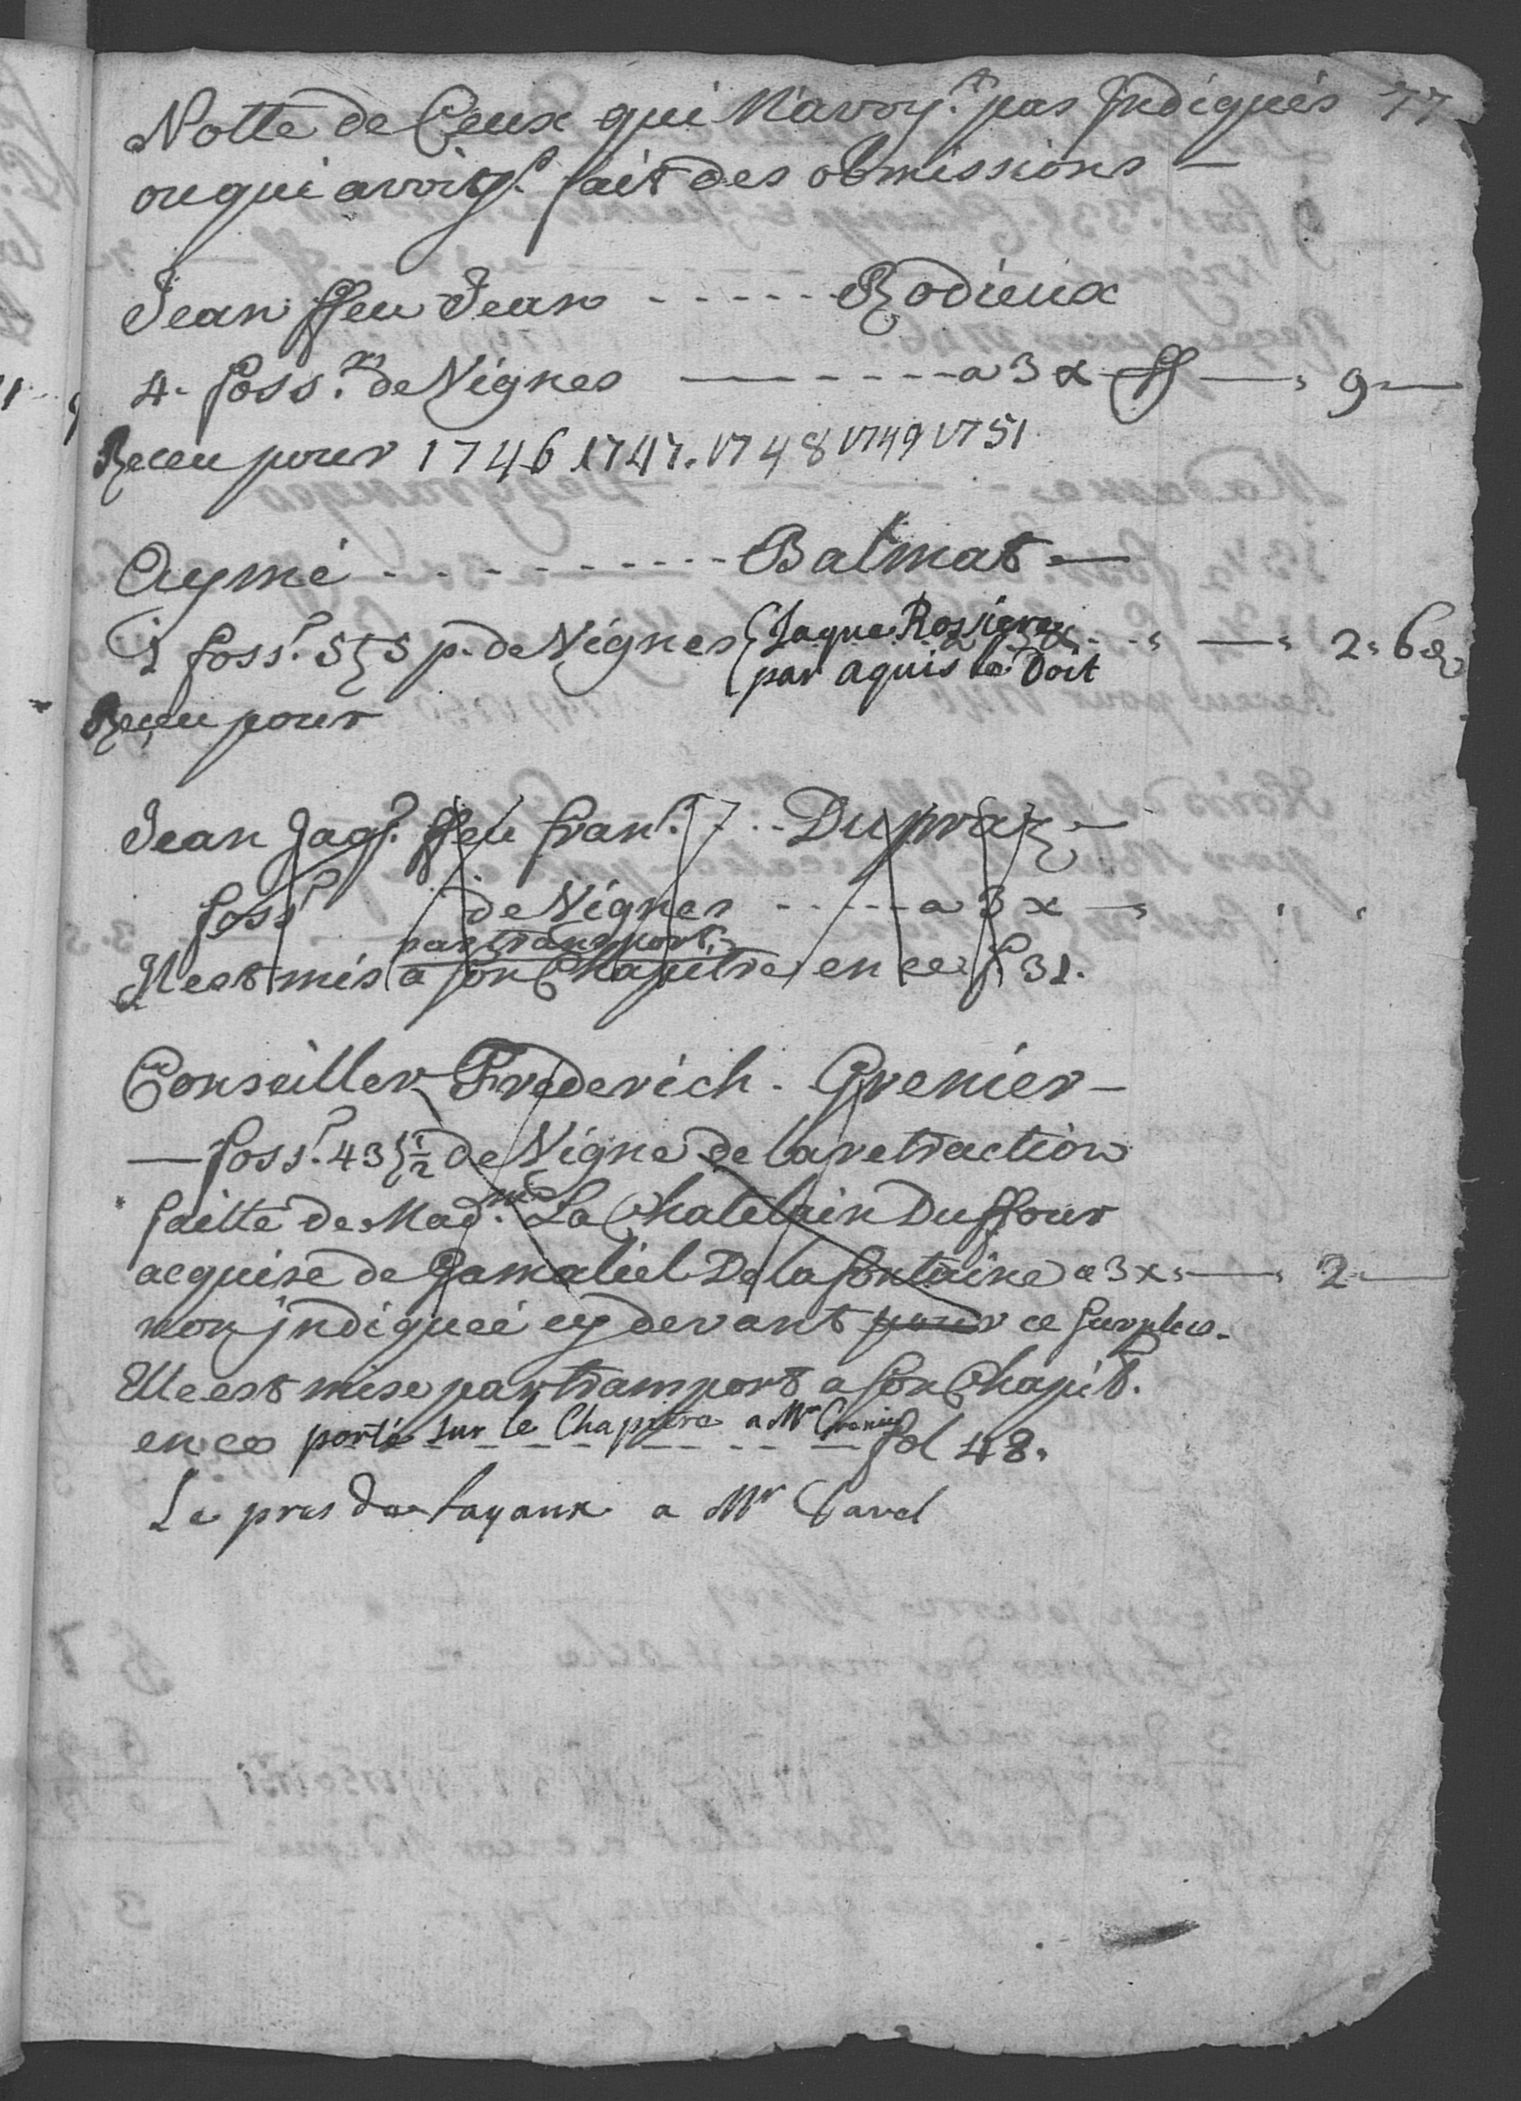 Notte de Ceux qui N'avoyt. pas Indiqués 77
ou qui avoyt. fait des obmissions —
Jean ffeu Jean - - - - - Rodieux
4. foss.rs de Vignes — - - - - - a 3 x ff — 9 —
Receu pour 1746 1747. 1748 1749 1751
Aymé - - - - - - - - - - Balmat —
1 foss.r 5 p. de Vignes { Jaque Rossier — 2 " 6
par aquis le Doit
Receu pour
Jean Jaqs. ffeu fran.s - - Dupraz —
foss.r de Vignes - - - - - a 3 x —
par transport
Il est mis a son Chapitre en ce f 31.
Conseiller Frederich. Grenier —
— foss.r 43 ½ de Vigne de la retraction
faitte de Mad.me La Chatelain Duffour
acquise de Gamaliel Delafontaine a 3 x " — 2 —
non jndiqueé cy devant pour ce surplus.
Elle est mise par transport a son Chapit.
en ce porté sur le Chapitre a Mr Grenier fol 48.
Le pres a Mr Davel